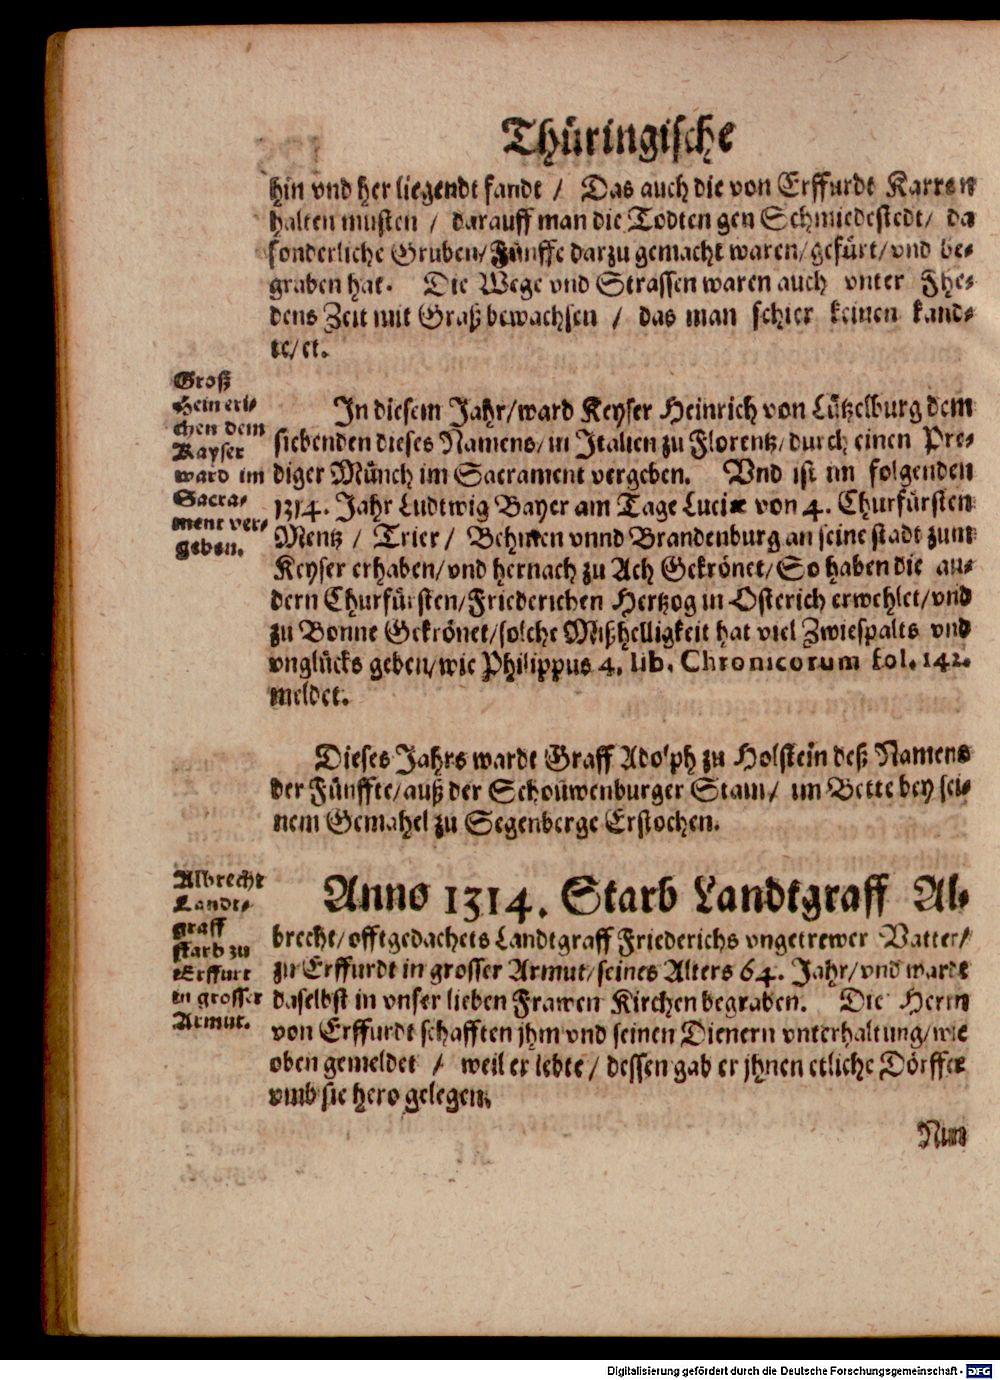 Thüringische
hin vnd her liegendt fandt / Das auch die von Erffurdt Karren
halten musten / darauff man die Todten gen Schmiedestedt/ da
sonderliche Gruben/Fünffe darzu gemacht waren/gefürt/vnd be-
graben hat. Die Wege vnd Strassen waren auch vnter Fhe-
dens Zeit mit Graß bewachsen / das man schier keinen kand-
te/et.
Groß
Heineri-
chen dem
Kayser
ward im
Sacra-
ment ver-
geben.
In diesem Jahr/ward Keyser Heinrich von Lützelburg dem
siebenden dieses Namens/in Italien zu Florentz/durch einen Pre-
diger Münch im Sacrament vergeben. Vnd ist im folgenden
1314. Jahr Ludtwig Bayer am Tage Luciæ von 4. Churfürsten
Mentz / Trier / Behmen vnnd Brandenburg an seine stadt zum
Keyser erhaben/vnd hernach zu Ach Gekrönet/So haben die an-
dern Churfürsten/Friederichen Hertzog in Osterich erwehlet/vnd
zu Bonne Gekrönet/solche Mißhelligkeit hat viel Zwiespalts vnd
vnglücks geben/wie Philippus 4. lib. Chronicorum fol. 142.
meldet.
Dieses Jahrs wardt Graff Adolph zu Holstein deß Namens
der Fünffte/auß der Schouwenburger Stam/ im Bette bey sei-
nem Gemahel zu Segenberge Erstochen.
Albrecht
Landt-
graff
starb zu
Erffurt
in grosser
Armut.
Anno 1314. Starb Landtgraff Al-
brecht/offtgedachets Landtgraff Friederichs vngetrewer Vatter/
zu Erffurdt in grosser Armut/seines Alters 64. Jahr/vnd wardt
daselbst in vnser lieben Frawen Kirchen begraben. Die Herrn
von Erffurdt schafften jhm vnd seinen Dienern vnterhaltung/wie
oben gemeldet / weil er lebte / dessen gab er jhnen etliche Dörffer
vmb sie hero gelegen.
Nun
Digitalisierung gefördert durch die Deutsche Forschungsgemeinschaft - DFG